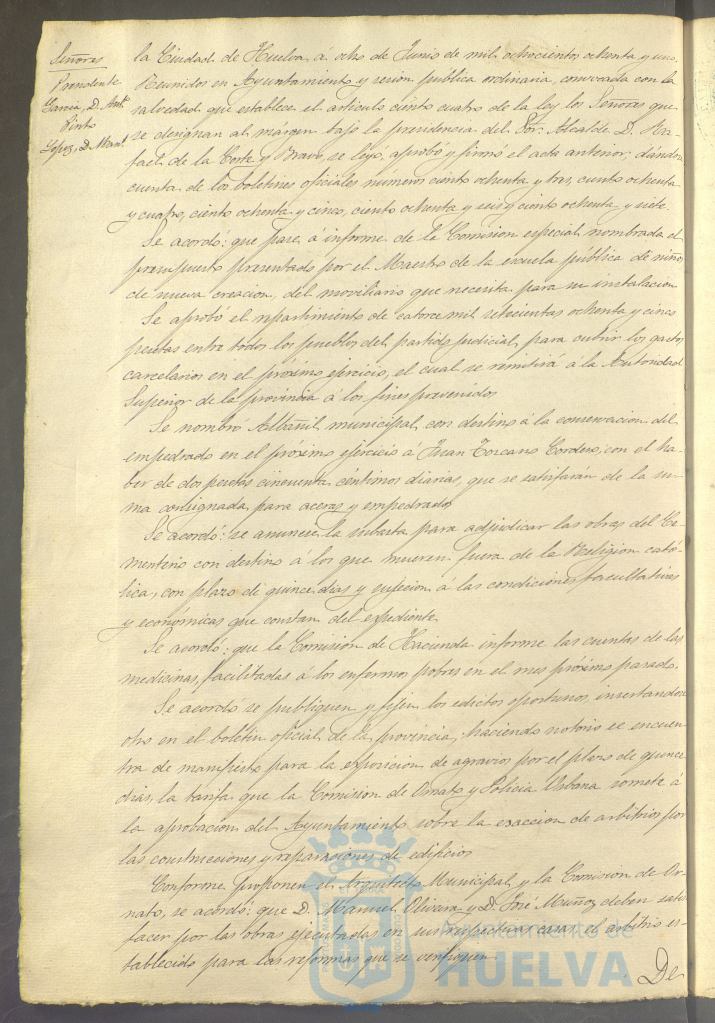 Señores
Presidente
Garcia, D. Antº
Pinto
Lopez, D. Manl.
la Ciudad de Huelva á ocho de Junio de mil ochocientos ochenta y uno,
Reunidos en Ayuntamiento y sesion publica ordinaria, convocada con la
salvedad que establece el articulo ciento cuatro de la ley los Señores que
se designan al margen bajo la presidencia del Sor. Alcalde D. Ra-
fael de la Corte y Bravo, se leyó, aprobó y firmó el acta anterior; dándose
cuenta de los boletines oficiales numeros ciento ochenta y tres, ciento ochenta
y cuatro, ciento ochenta y cinco, ciento ochenta y seis y ciento ochenta y siete.
Se acordó: que pase á informe de la Comision especial nombrada el
presupuesto presentado por el Maestro de la escuela pública de niños
de nueva creacion, del moviliario que necesita para su instalacion
Se aprobó el repartimiento de catorce mil setecientas ochenta y cinco
pesetas entre todos los pueblos del partido judicial, para cubrir los gastos
carcelarios en el próximo ejercicio, el cual se remitirá á la Autoridad
Superior de la provincia á los fines prevenidos
Se nombró Albañil municipal con destino á la conservacion del
empedrado en el próximo ejercicio á Juan Toscano Cordero, con el ha-
ber de dos pesetas cincuenta céntimos diarias, que se satisfarán de la su-
ma consignada para aceras y empedrados
Se acordó: se anuncie la subasta para adjudicar las obras del Ce-
menterio con destino á los que mueren fuera de la Religion cató-
lica, con plazo de quince dias y sujecion á las condiciones facultativas
y económicas que constan del expediente.
Se acordó: que la Comision de Hacienda informe las cuentas de las
medicinas, facilitadas á los enfermos pobres en el mes próximo pasado.
Se acordó se publiquen y fijen los edictos oportunos, insertandose
otro en el boletin oficial de la provincia, haciendo notorio se encuen-
tra de manifiesto para la exposicion de agravios por el plazo de quince
dias, la tarifa que la Comision de Ornato y Policia Urbana somete á
la aprobacion del Ayuntamiento sobre la exaccion de arbitrios por
las construcciones y reparaciones de edificios
Conforme proponen el Arquitecto Municipal y la Comision de Or-
nato, se acordó: que D. Manuel Olivara y D. José Muñoz deben satis-
facer por las obras ejecutadas en sus respectivas casas, el arbitrio es-
tablecido para las reformas que se verifiquen.
De
Ayuntamiento de
HUELVA